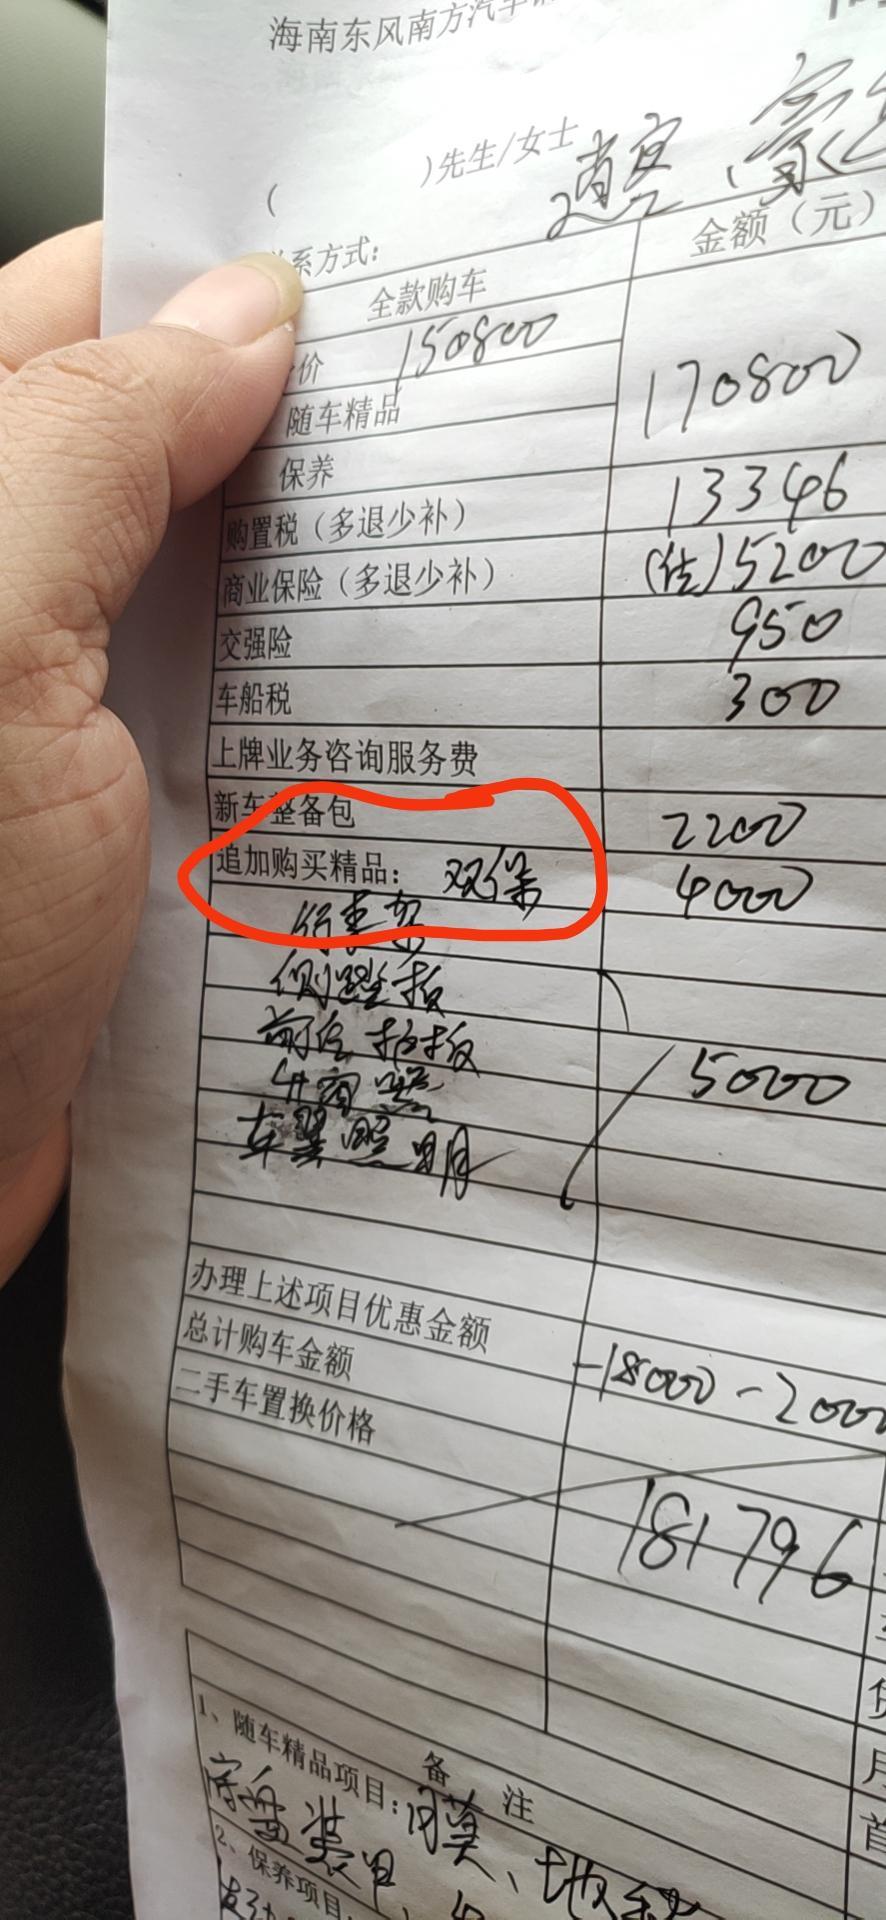 海南东风南方汽车
)先生/女士 逍客、豪
(
系方式:
全款购车 金额（元）
价 150800 170800
随车精品
保养
购置税（多退少补） 13346
商业保险（多退少补） (估)5200
交强险 950
车船税 300
上牌业务咨询服务费
新车整备包 2200
追加购买精品: 双保 4000
行李架
侧踏板
前后护板 5000
车翼照明
办理上述项目优惠金额 -18000-2000
总计购车金额
二手车置换价格
181796
备 注
1、随车精品项目:
膜、地
2、保养项目
月
首